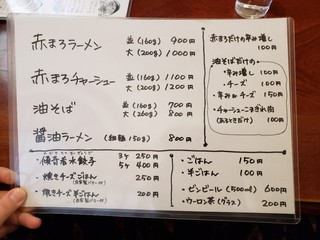 赤まろラーメン 並(160g) 900円
大(200g) 1000円
赤まろチャーシュー 並(160g) 1100円
大(200g) 1200円
油そば 並(160g) 700円
大(260g) 800円
醤油ラーメン (細麺150g) 800円
赤まろだけの辛み増し
100円
油そばだけの
・辛み増し 100円
・チーズ 100円
・辛みdeチーズ 150円
・チャーシューこまぎれ肉
(あるときだけ) 100円
水餃子 3ケ 250円
5ケ 400円
・焼きチーズごはん 250円
・焼きチーズ半ごはん 200円
・ごはん 150円
・半ごはん 100円
・ビンビール(500ml) 600円
・ウーロン茶(グラス) 200円